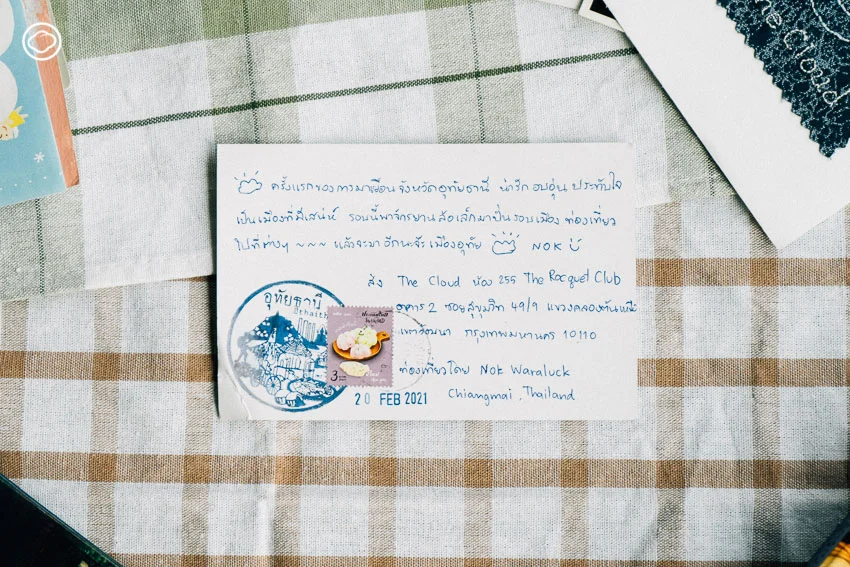 ครั้งแรกของการมาเยือน จังหวัดอุทัยธานี น่ารัก อบอุ่น ประทับใจ
เป็นเมืองที่มีเสน่ห์ รอบนี้พาจักรยานล้อเล็กมาปั่นรอบเมือง ท่องเที่ยว
ไปที่ต่างๆ ~~~ แล้วจะมาอีกนะจ๊ะ เมืองอุทัย NOK
ส่ง The Cloud ห้อง 255 The Racquet Club
อาคาร 2 ซอยสุขุมวิท 49/9 แขวงคลองตันเหนือ
เขตวัฒนา กรุงเทพมหานคร 10110
ท่องเที่ยวโดย Nok Waraluck
Chiangmai, Thailand
อุทัยธานี
3
20 FEB 2021
The Cloud